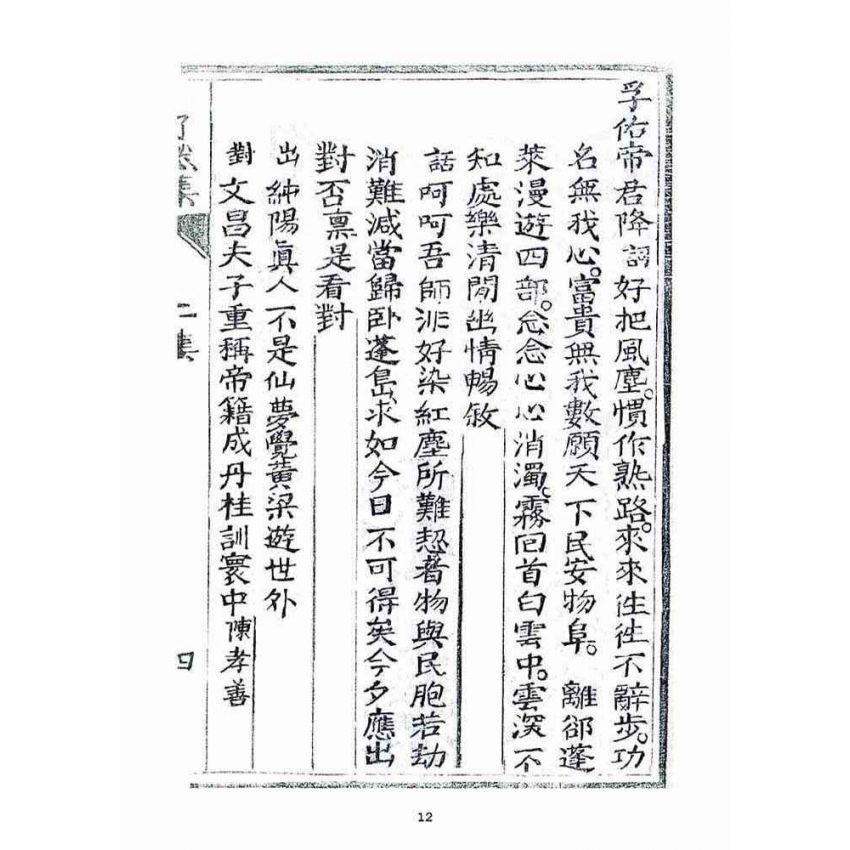 孚佑帝君降詞好把風塵。慣作熟路。來來徃徃不辭步。功
名無我心。富貴無我數願天下民安物阜。離郤蓬
萊漫遊四部。忩念心心消濁。霧囘首白雲中。雲深不
知處樂清閒幽情暢敘
話呵呵吾師非好染紅塵所難恝者物與民胞若劫
消難減當歸卧蓬島求如今日不可得矣今夕應出
對否禀是看對
出 純陽眞人不是仙夢覺黃梁遊世外
對 文昌夫子重稱帝籍成丹桂訓寰中陳孝善
了然集
二集
四
12